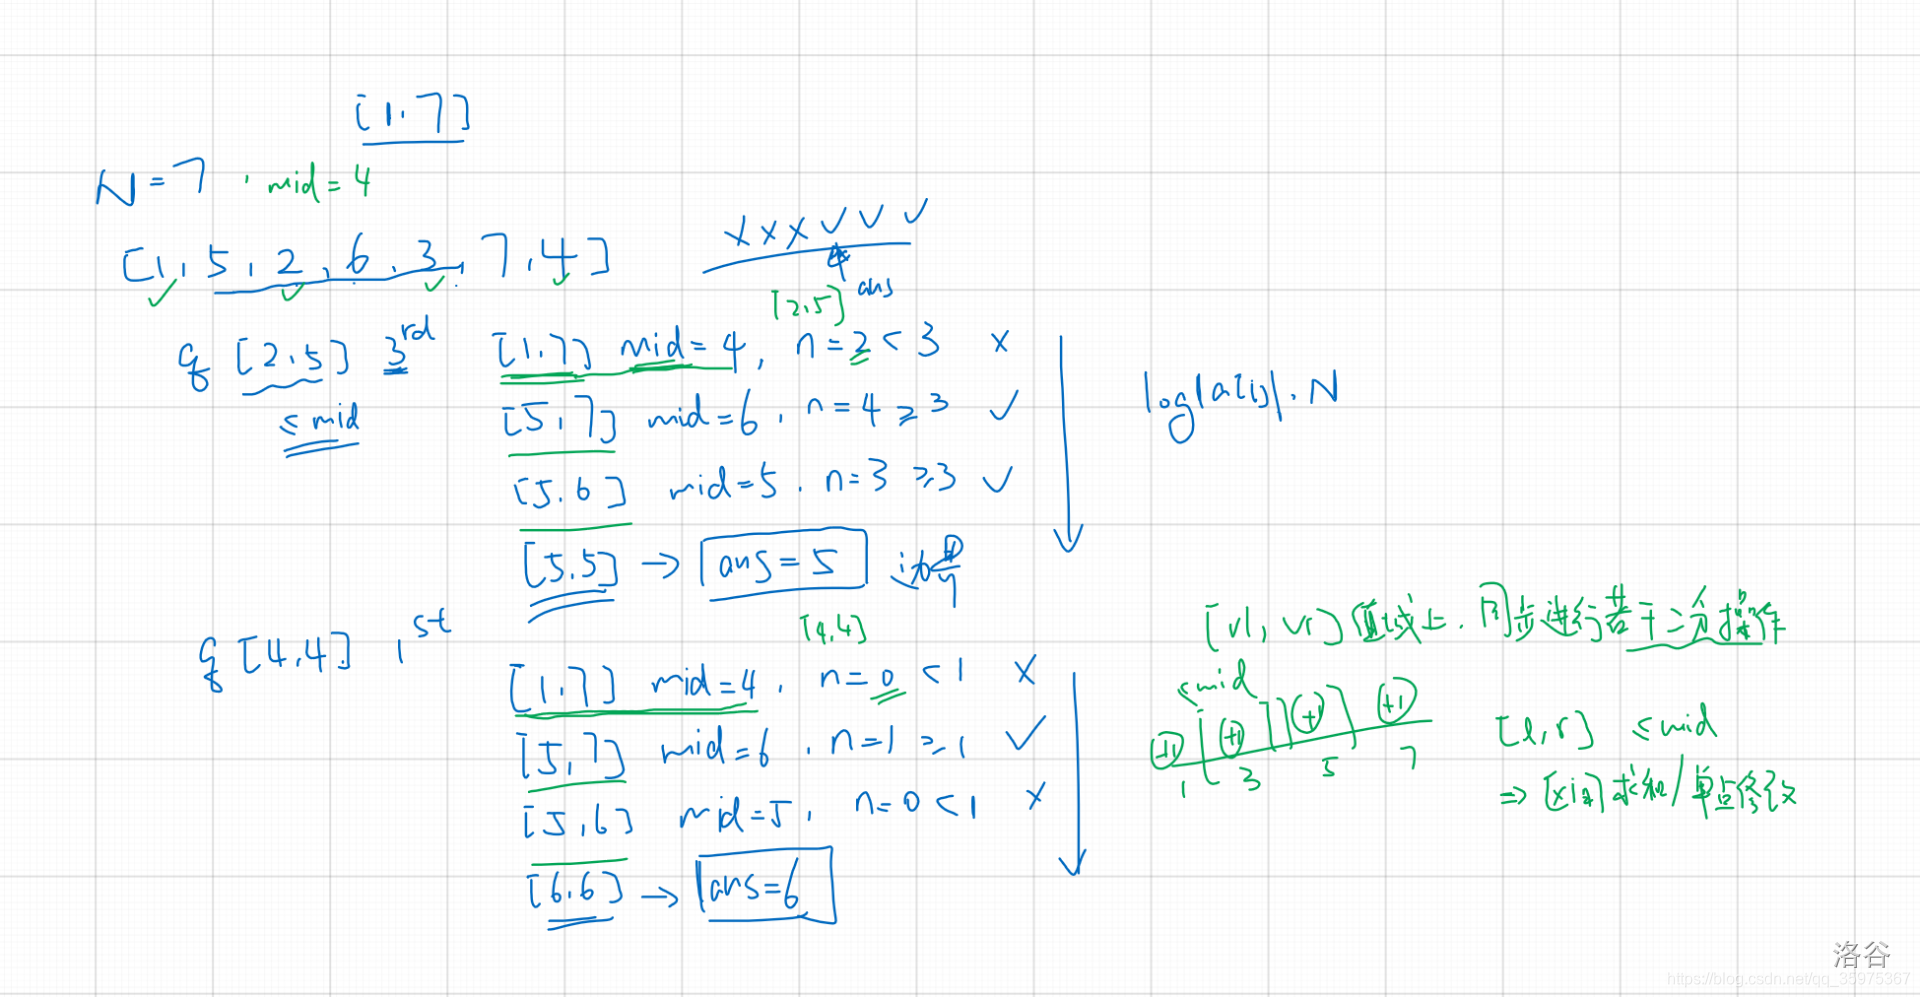 [1,7]
N=7, mid=4
[1,5,2,6,3,7,4]
ans
q [2,5] 3rd
≤mid
[2,5]
[1,7] mid=4, n=2<3 ×
[5,7] mid=6, n=4≥3 ✓
[5,6] mid=5, n=3≥3 ✓
[5,5] → ans=5 边界
log|a[i]|·N
q[4,4] 1st
[4,4]
[1,7] mid=4, n=0<1 ×
[5,7] mid=6, n=1≥1 ✓
[5,6] mid=5, n=0<1 ×
[6,6] → ans=6
[vl, vr] 值域上,同步进行若干二分操作
≤mid
+1 +1 +1 +1
1 3 5 7
[l,r] ≤mid
⇒ 区间求和/单点修改
洛谷
https://blog.csdn.net/qq_35975367